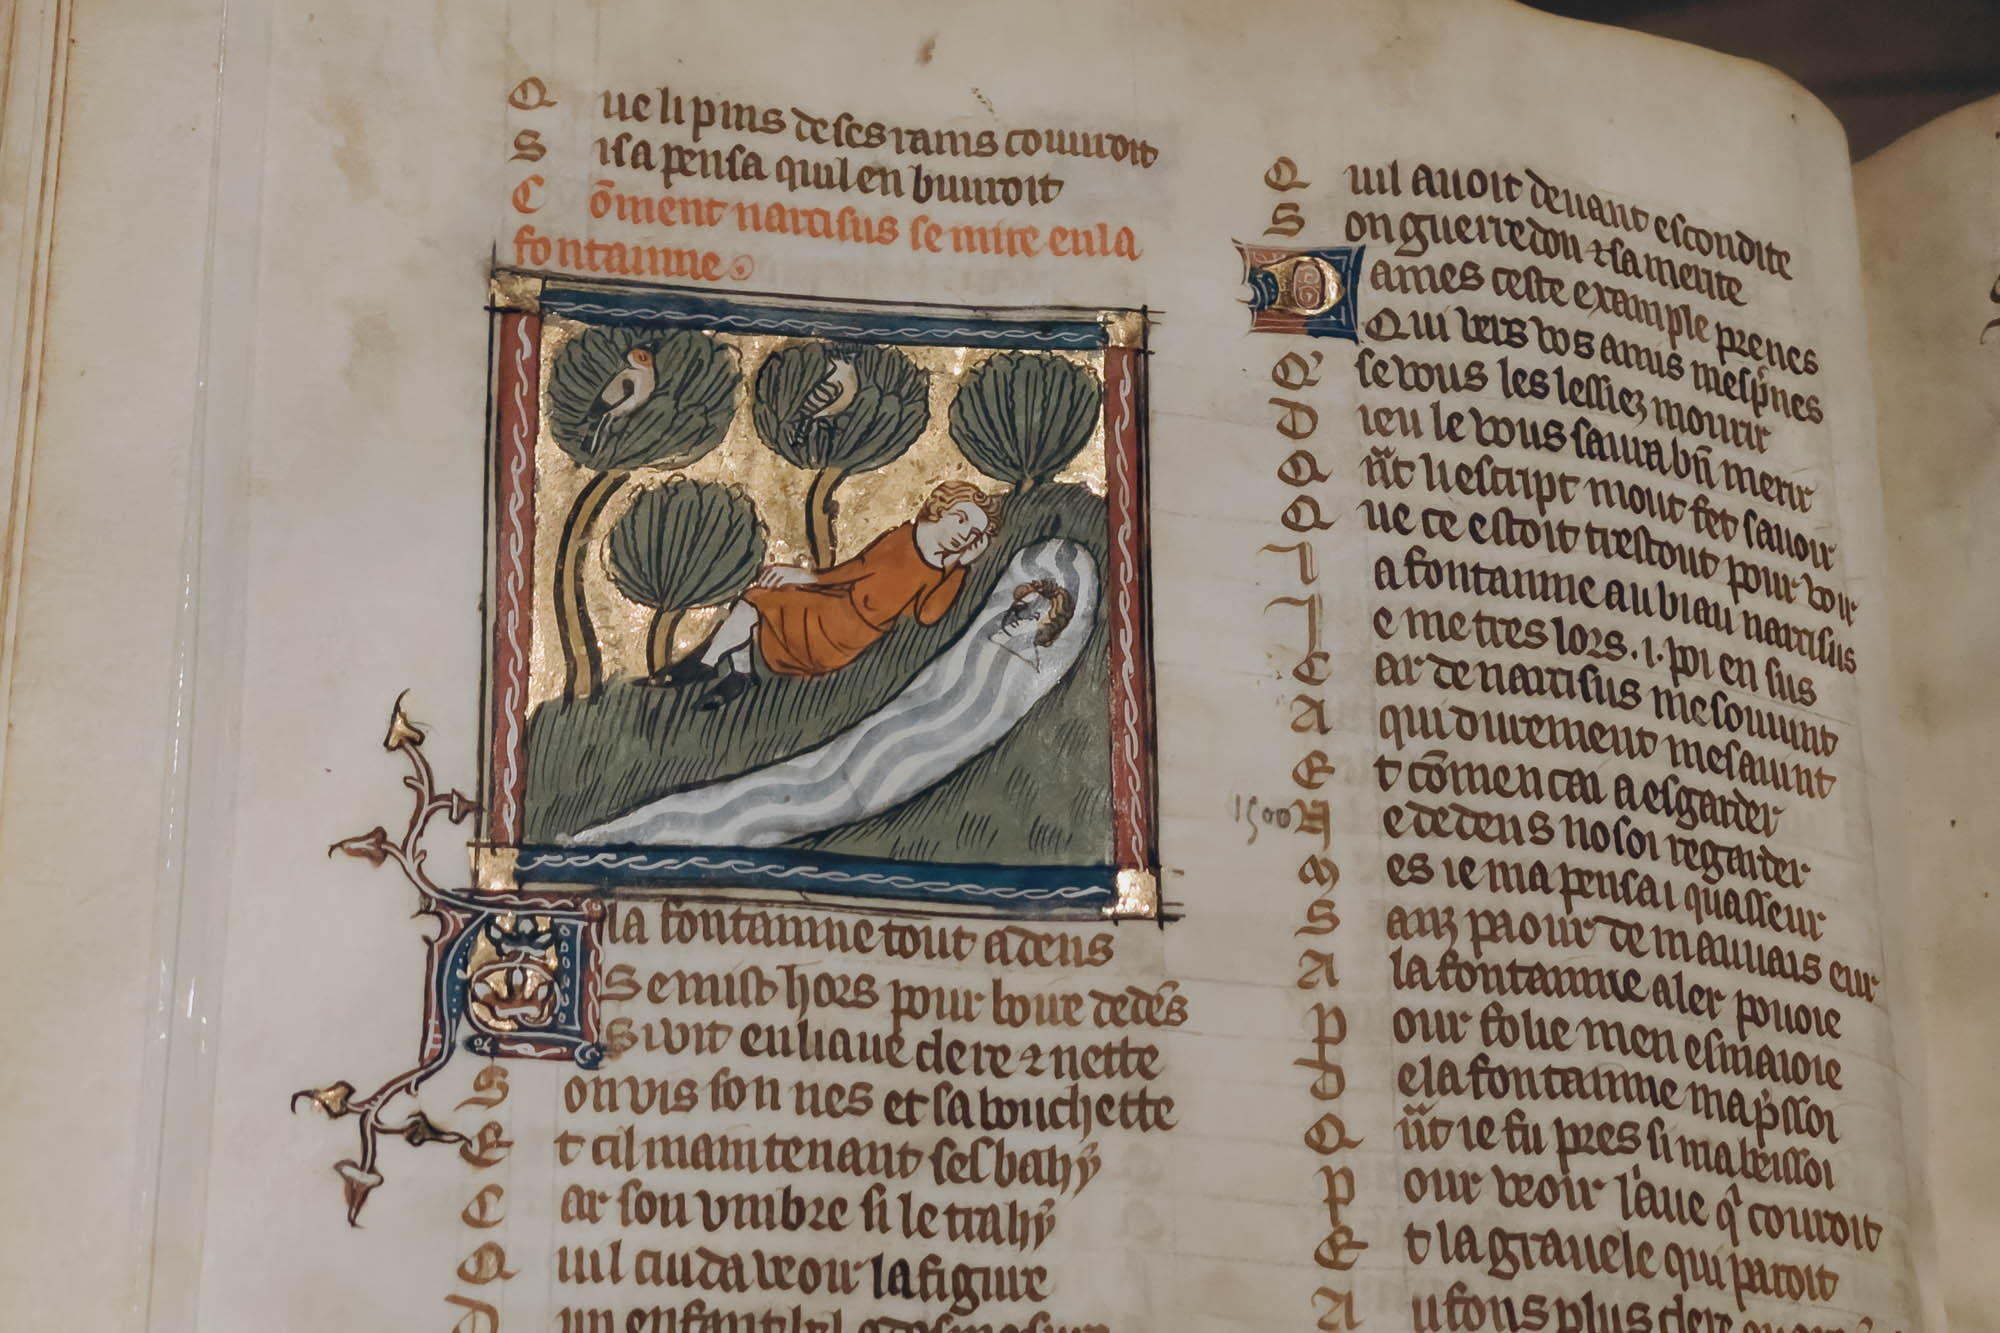 Que li pins de ses rains couuroit
Si sa pensa quil en buuroit
Cõment narcisus se mire en la
fontainne
A la fontainne tout adens
Se mist hors pour boiue dedẽs
Si uit en liaue clere ⁊ nette
Son uis son nes et sa bouchette
Et cil maintenant sesbahÿ
Car son vmbre si le trahÿ
Quil cuida ueoir la figure
Dun enfant bel
Quil auoit deuant escondite
Son guerredon ⁊ sa merite
Dames ceste example prenes
Qui uers uos amis mesp̃nes
Q' se uous les lessiez mourir
Dieu le uous saura bñ merir
Qñt liescript mout fet sauoir
Que ce estoit trestout pour uoir
La fontainne au biau narcisus
Je me tres lors .i. poi en sus
Car de narcisus me souuint
A qui durement mesauint
Et cõmencai a esgarder
1500 N e dedens nosoi regarder
Mes ie ma pensai quasseur
Sanz paour de mauuais eur
A la fontainne aler pouoie
Pour folie men esmaioie
De la fontainne map̃ssoi
Qñt ie fu pres si mabeissoi
Pour ueoir l'aue q̃ couroit
Et la grauele qui paroit
Au fons plus clere